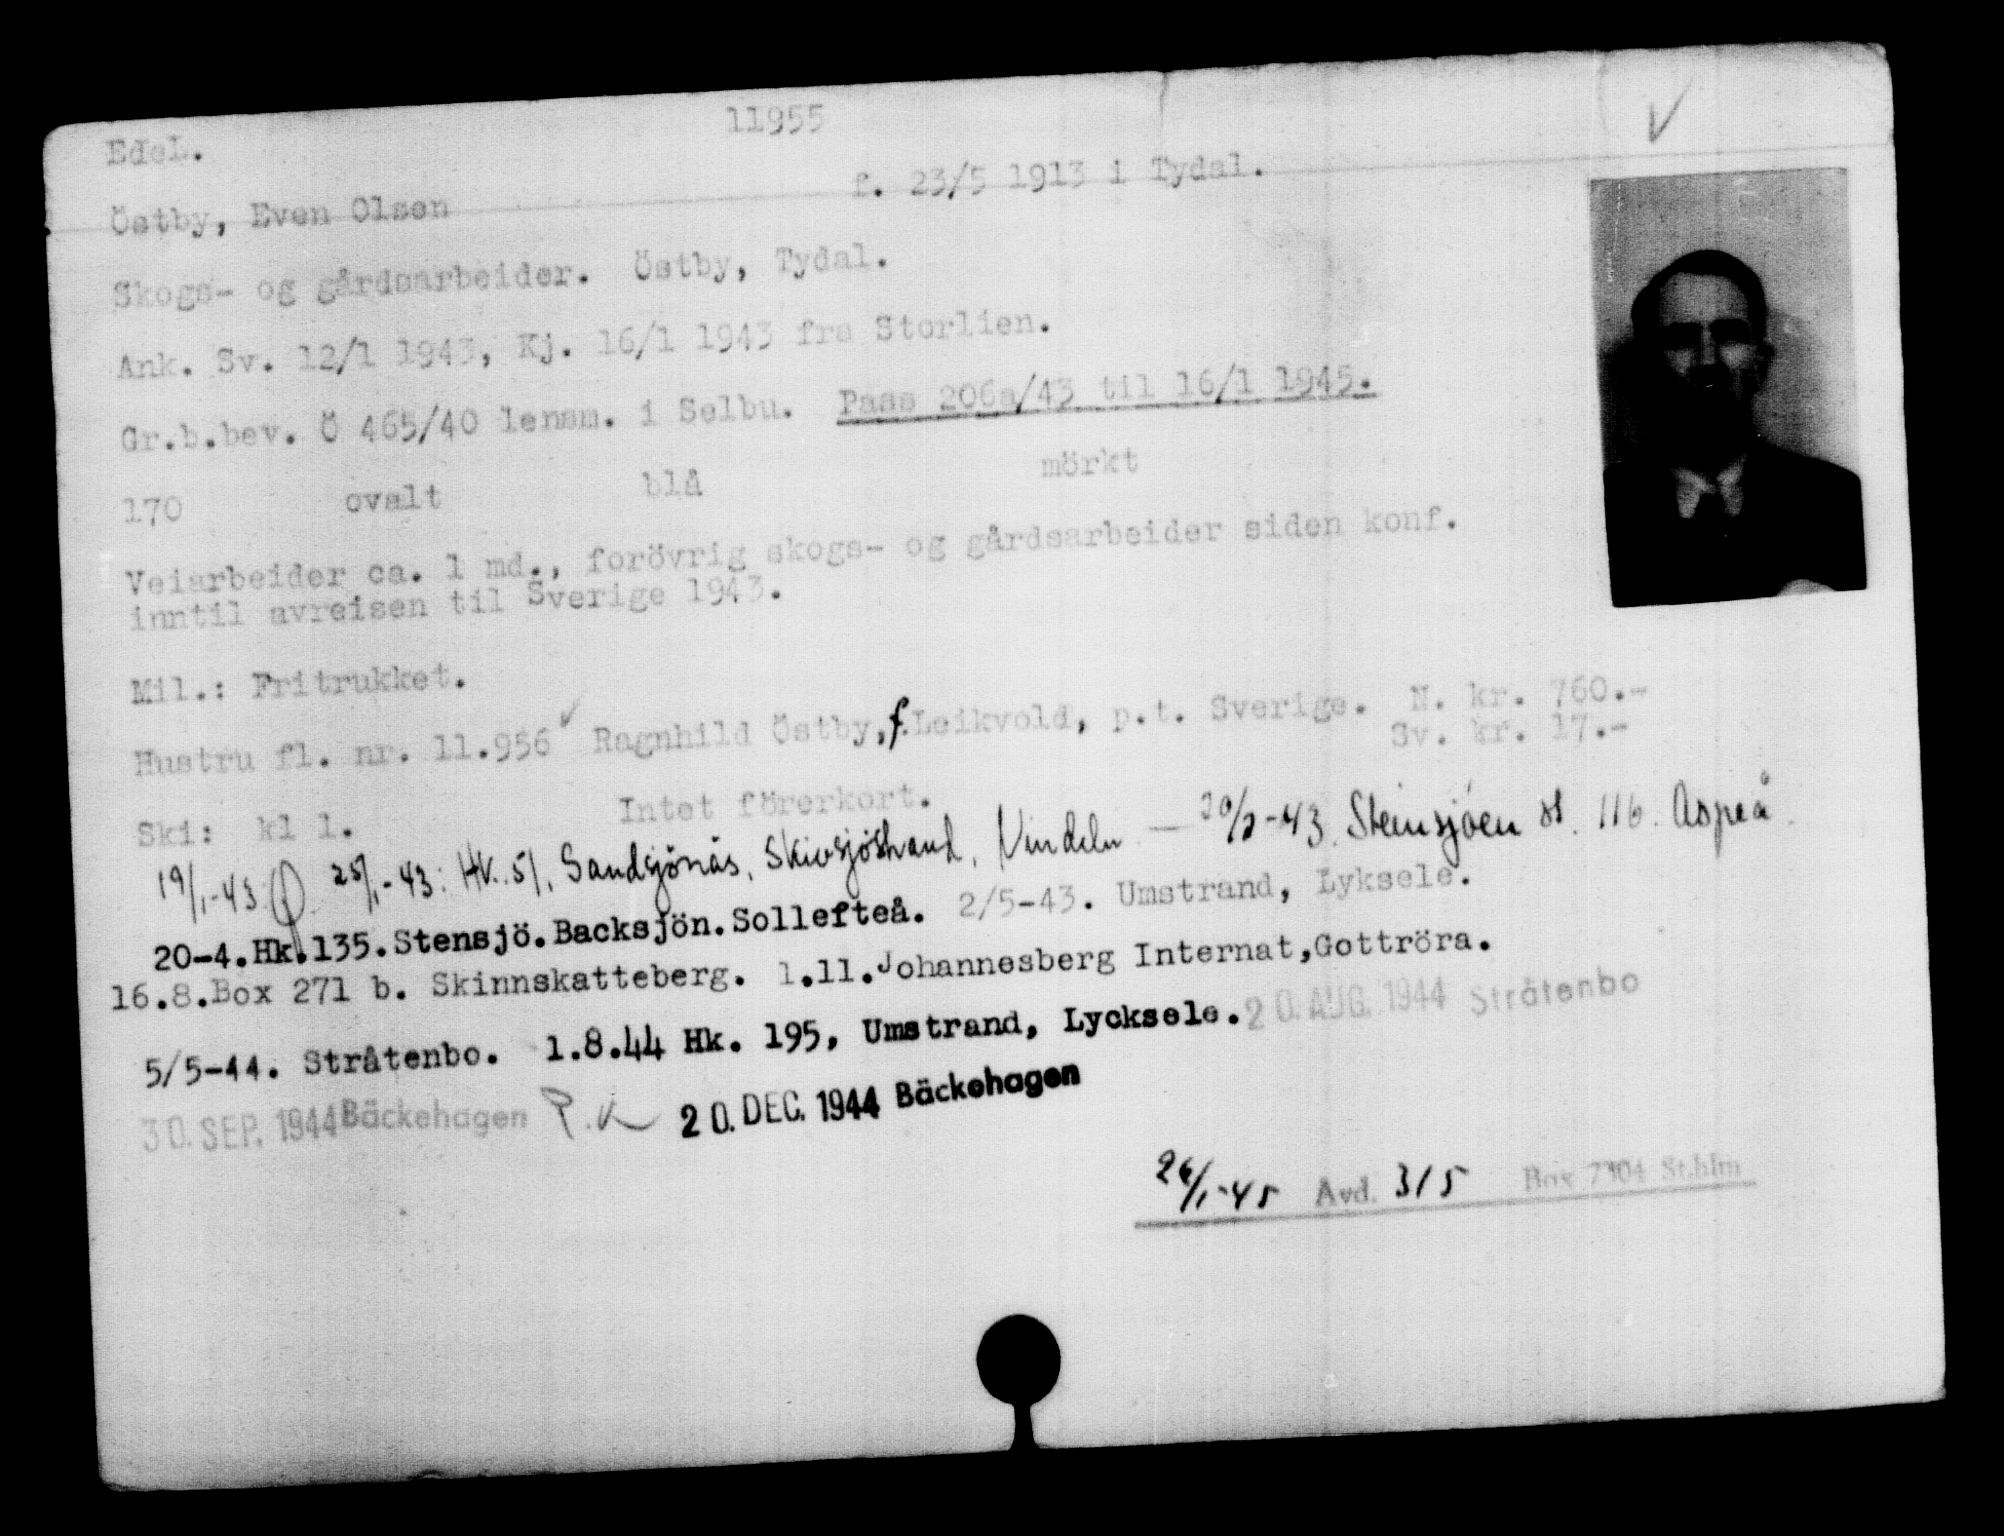 11955
EdeL.
Östby, Even Olsen f. 23/5 1913 i Tydal.
Skogs- og gårdsarbeider. Östby, Tydal.
Ank. Sv. 12/1 1943, Kj. 16/1 1943 fra Storlien.
Gr.b.bev. Ö 465/40 lensm. i Selbu. Pass 206a/43 til 16/1 1945.
170 ovalt blå mörkt
Veiarbeider ca. 1 md., forövrig skogs- og gårdsarbeider siden konf.
inntil avreisen til Sverige 1943.
Mil.: Fritrukket.
Hustru fl. nr. 11.956 Ragnhild Östby, f. Leikvold, p.t. Sverige. N. kr. 760.-
Sv. kr. 17.-
Ski: kl 1. Intet förerkort.
19/1-43 25/1-43: HK. 51, Sandsjönäs, Skivsjöstrand, Vindeln — -43. Steinsjöen 116. Aspeå
20-4.Hk.135.Stensjö.Backsjön.Sollefteå. 2/5-43. Umstrand, Lyksele.
16.8.Box 271 b. Skinnskatteberg. 1.11.Johannesberg Internat,Gottröra.
5/5-44. Stråtenbo. 1.8.44 Hk. 195, Umstrand, Lycksele. 20. AUG. 1944 Stråtenbo
30. SEP. 1944 Bäckehagen P.K 20. DEC. 1944 Bäckehagen
26/1-45 Avd. 315 Box 7304 St.hlm